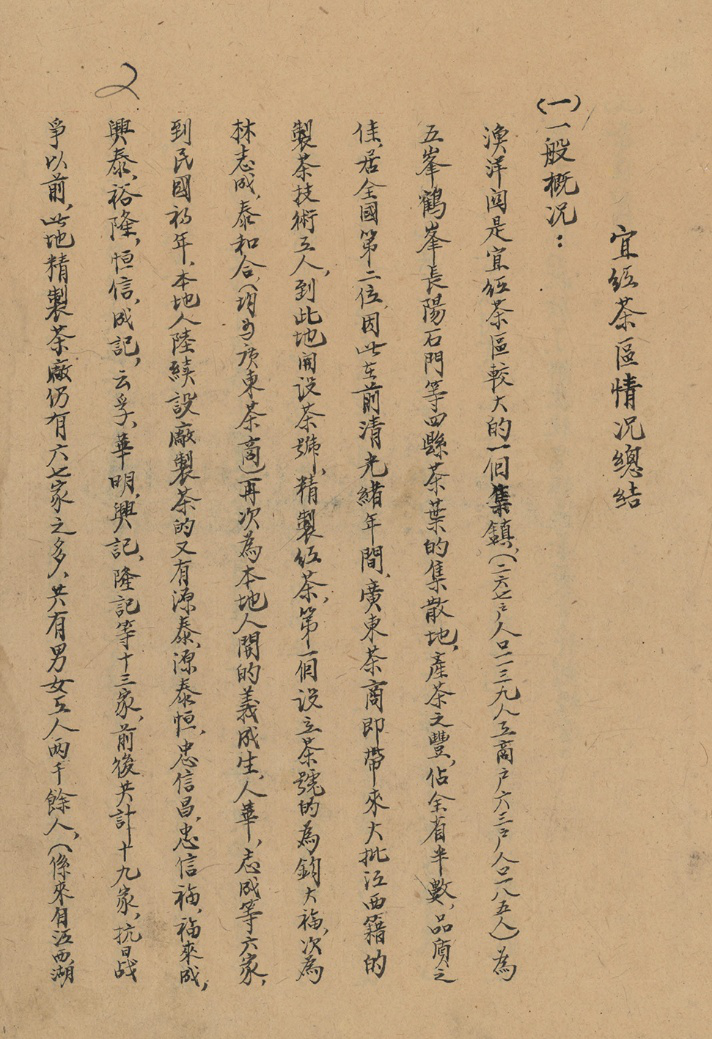 宜红茶區情况總结
(一)一般概况：
漁洋関是宜红茶區較大的一個集鎮，(二六七户人口一二三九人工商户六三户人口一八五人)為
五峯鶴峯長陽石門等四縣茶葉的集散地，產茶之豐，佔全省半數，品質之
佳，居全國第二位，因此在前清光緒年間，廣東茶商即帶來大批江西籍的
製茶技術工人，到此地開設茶號，精製红茶，第一個设立茶號的為鈞大福，次為
林志成，泰和合，(均为广東茶商)再次為本地人開的義成生，人華，志成等六家，
到民國初年，本地人陸續設廠製茶的又有源泰，源泰恒，忠信昌，忠信福，福來成，
興泰，裕隆，恒信，成記，云孚，華明，興記，隆記等十三家，前後共計十九家，抗日战
爭以前，此地精製茶廠仍有六七家之多，共有男女工人两千餘人，(係來自江西湖
2